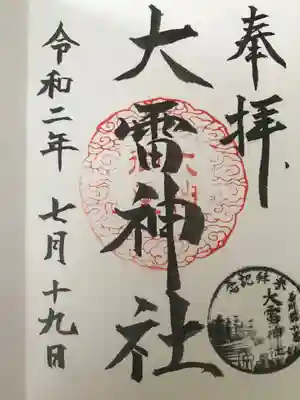 奉拝
大雷神社
令和二年 七月 十九日
参拝記念
大雷神社